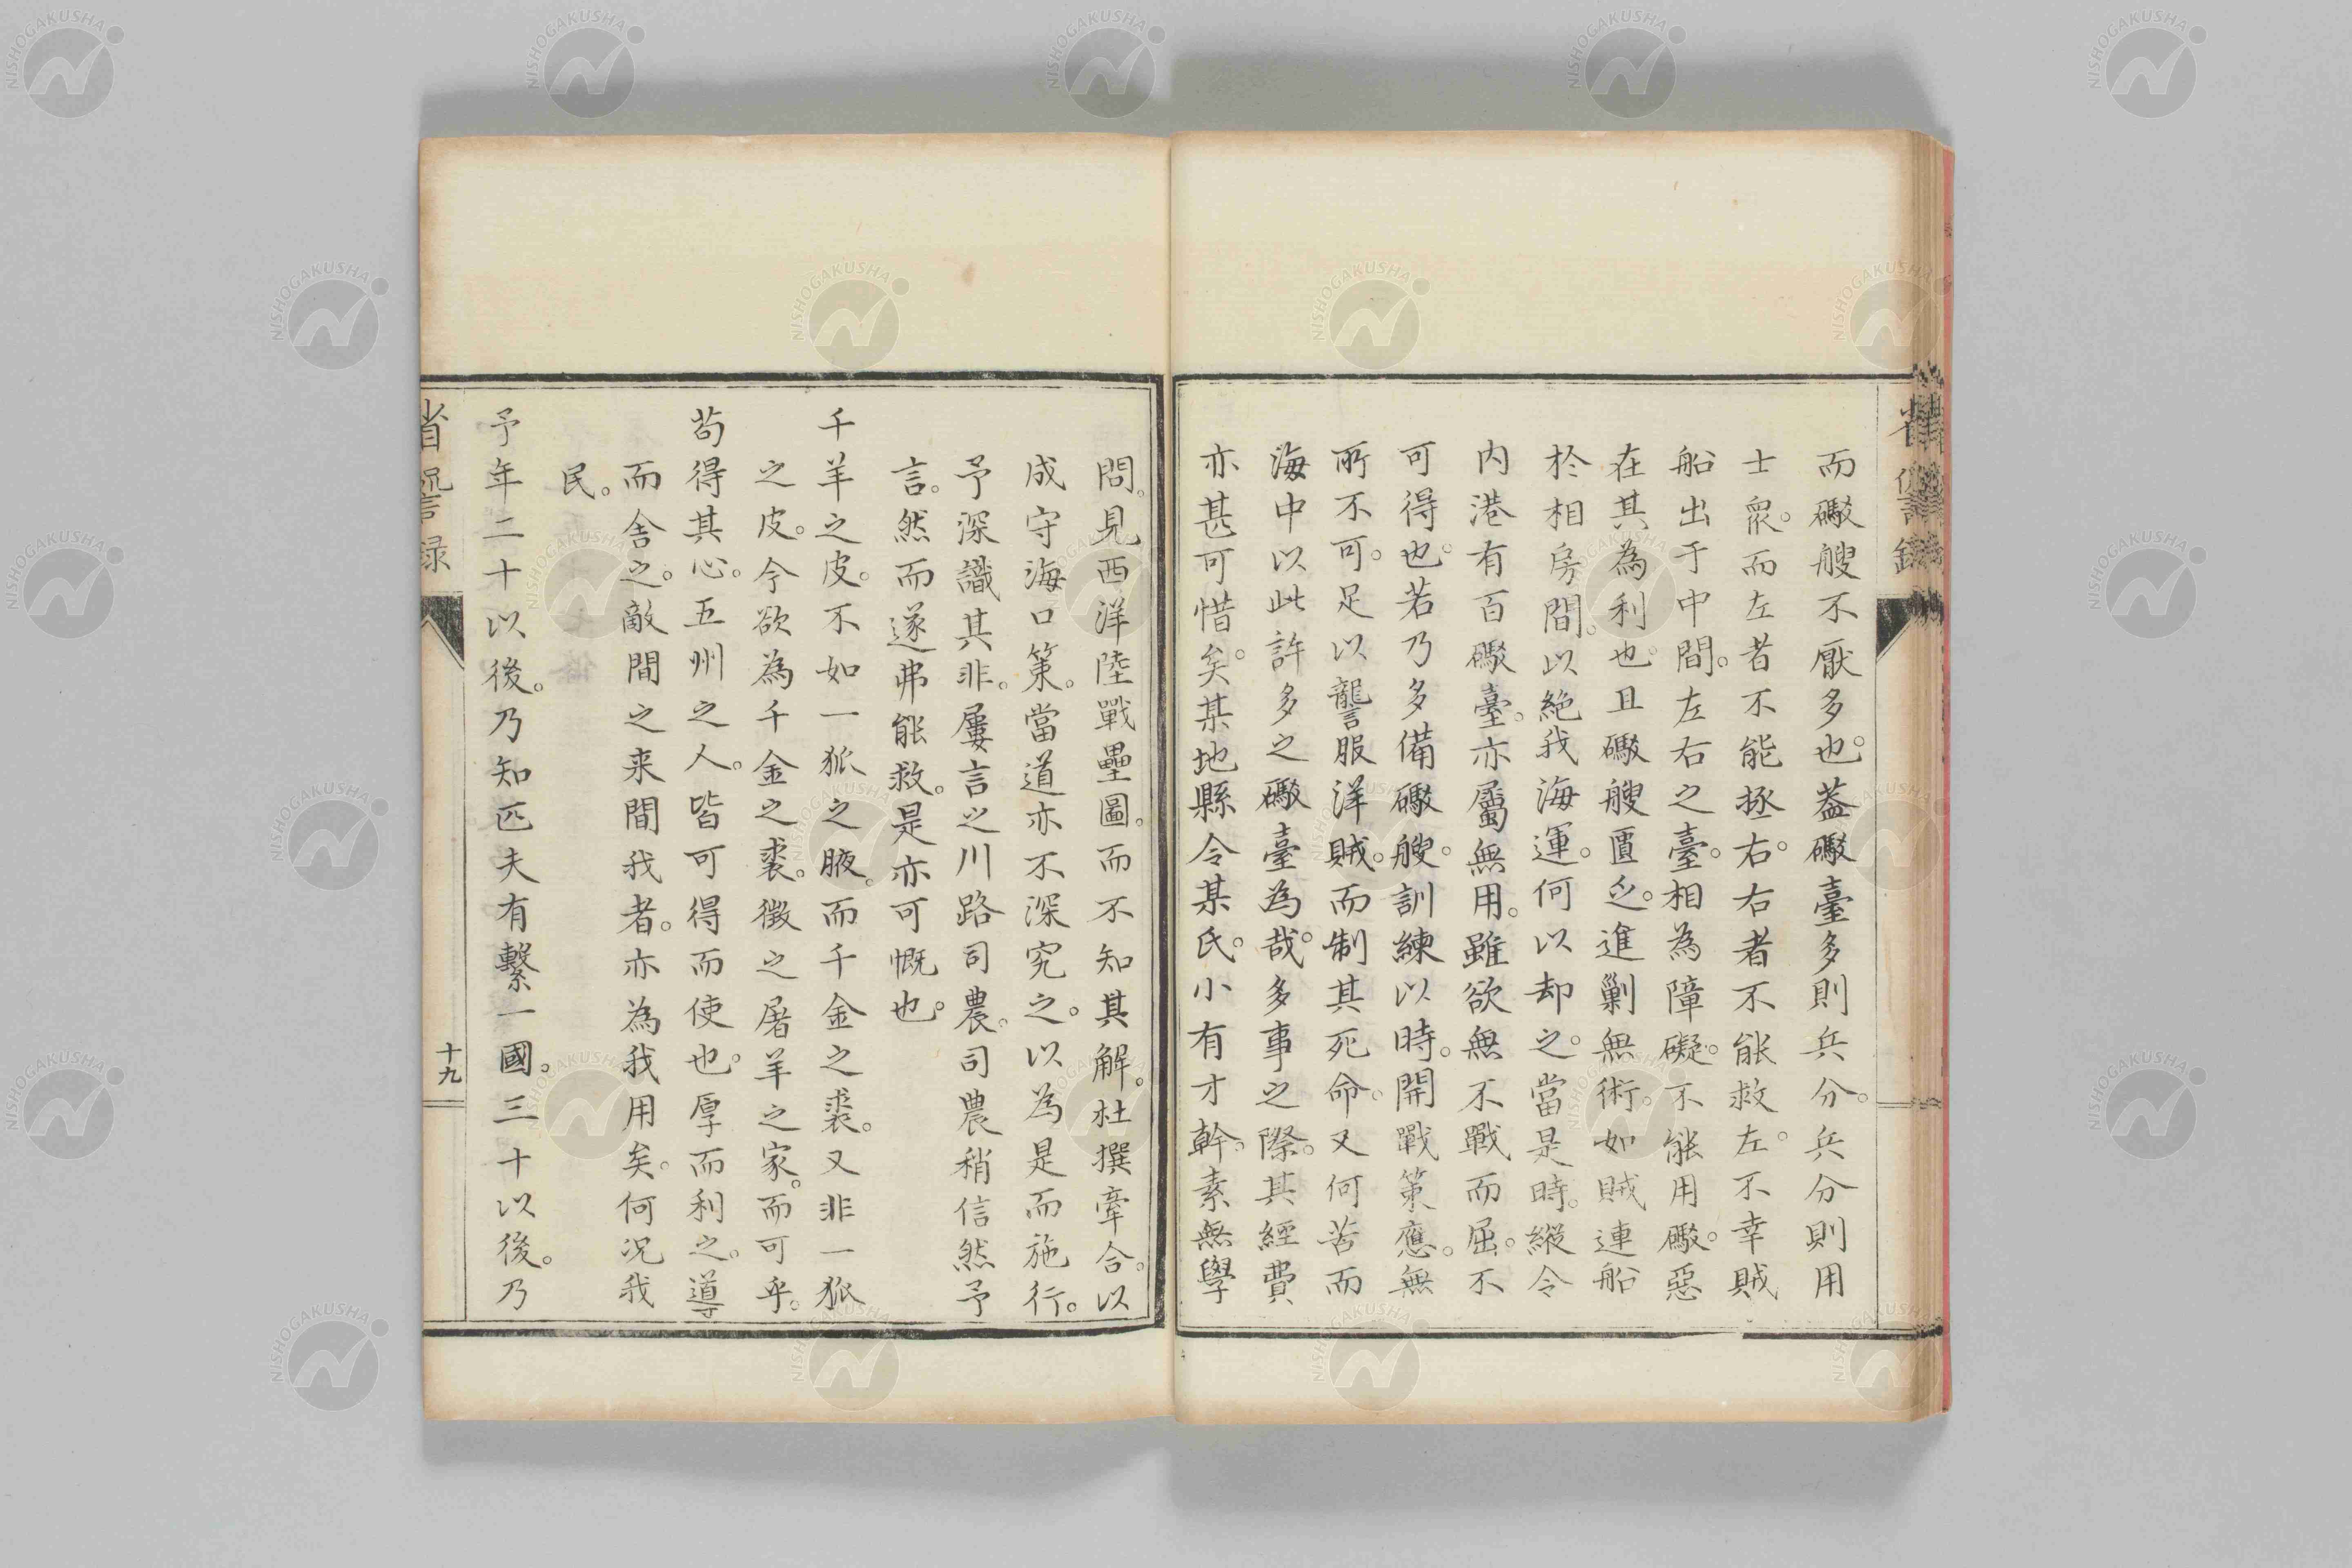 而礮艘不厭多也。蓋礮臺多則兵分。兵分則用
士衆。而左者不能拯右。右者不能救左。不幸賊
船出于中間。左右之臺。相為障礙。不能用礮。惡
在其為利也。且礮艘匱乏。進剿無術。如賊連船
於相房間。以絕我海運。何以却之。當是時。縱令
内港有百礮臺。亦屬無用。雖欲無不戰而屈。不
可得也。若乃多備礮艘。訓練以時。開戰策應。無
所不可。足以讋服洋賊。而制其死命。又何苦而
海中以此許多之礮臺為哉。多事之際。其經費
亦甚可惜矣。某地縣令某氏。小有才幹。素無學
問。見西洋陸戰壘圖。而不知其解。杜撰牽合。以
成守海口策。當道亦不深究之。以為是而施行。
予深識其非。屢言之川路司農。司農稍信然予
言。然而遂弗能救。是亦可慨也。
千羊之皮。不如一狐之腋。而千金之裘。又非一狐
之皮。今欲為千金之裘。徵之屠羊之家。而可乎。
苟得其心。五州之人。皆可得而使也。厚而利之。導
而舍之。敵間之来間我者。亦為我用矣。何況我
民。
予年二十以後。乃知匹夫有繫一國。三十以後。乃
省諐録
十九
NISHOGAKUSHA